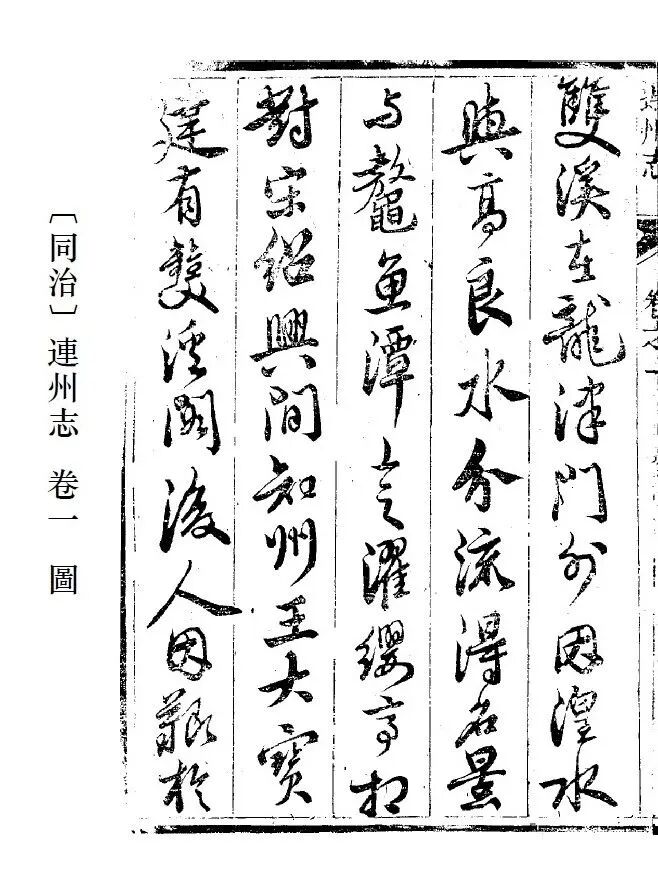 連州志 卷之一
雙溪在龍津門外因湟水
與高良水分流得名景
与鼇魚潭上之濯纓亭相
對宋紹興間知州王大寶
建有雙溪閣後人因艱於
〔同治〕連州志 卷一 圖